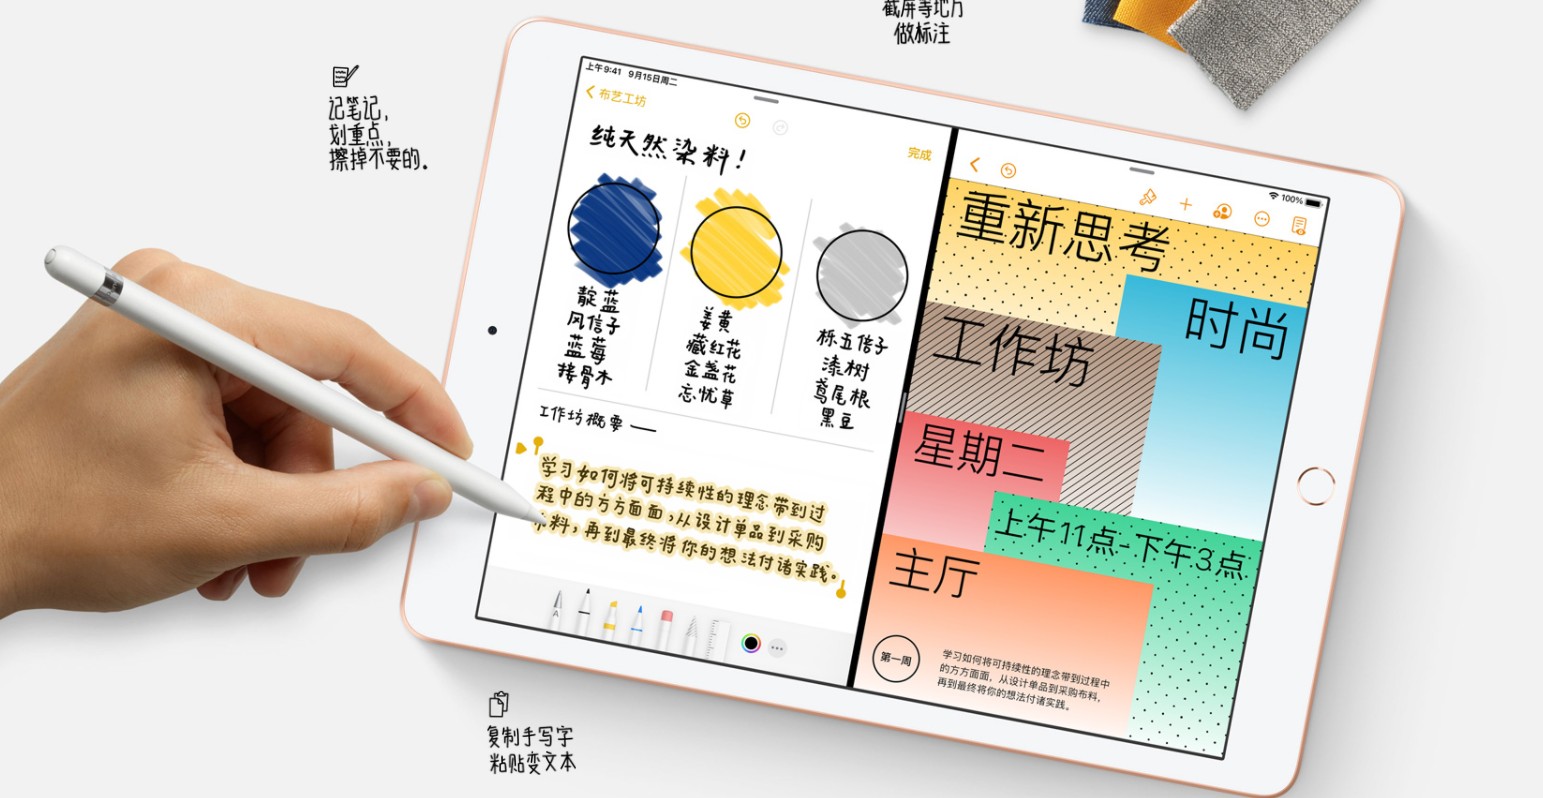 截屏等地方
做标注
记笔记，
划重点，
擦掉不要的。
上午9:41 9月15日周二
布艺工坊
完成
纯天然染料！
靛蓝
风信子
蓝莓
接骨木
姜黄
藏红花
金盏花
忘忧草
栎五倍子
漆树
鸢尾根
黑豆
工作坊概要 —
学习如何将可持续性的理念带到过
程中的方方面面，从设计单品到采购
布料，再到最终将你的想法付诸实践。
A
100%
重新思考
时尚
工作坊
星期二
上午11点-下午3点
主厅
第一周
学习如何将可持续性的理念带到过程中
的方方面面，从设计单品到采购布料，
再到最终将你的想法付诸实践。
复制手写字
粘贴变文本